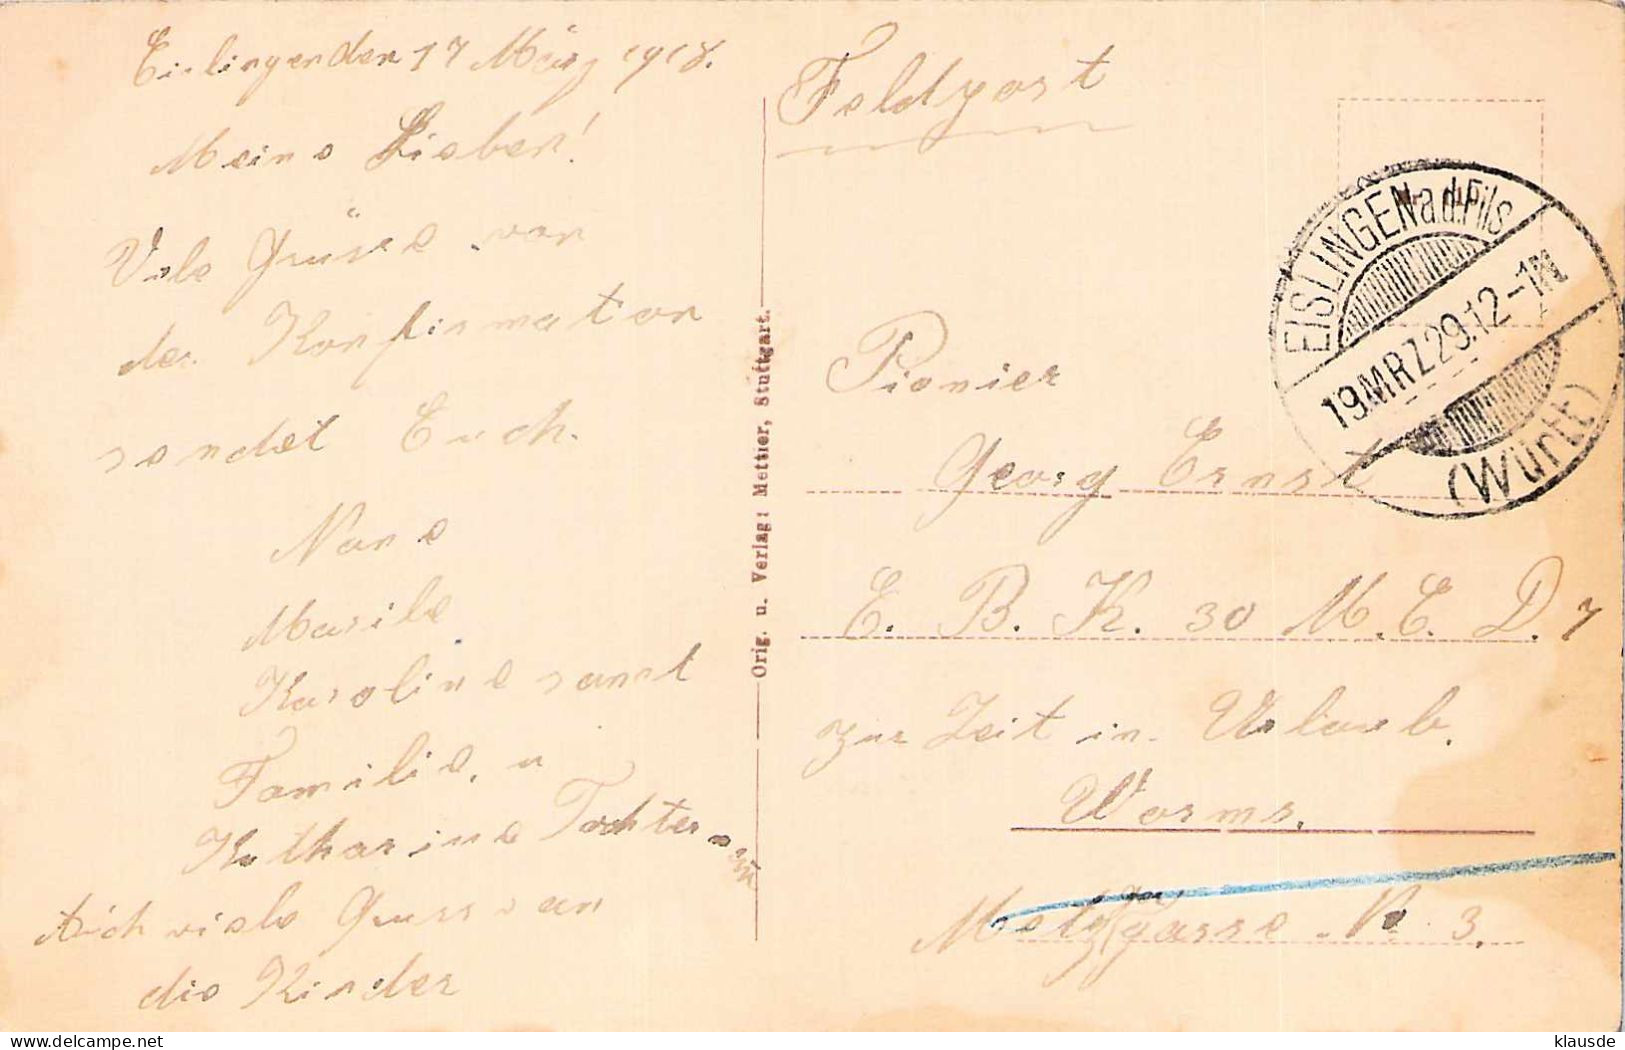 Eislingen den 17 März 1918.
Meine Lieben!
Viele Grüsse von
der Konfirmation
sendet Euch.
Nane
Marile
Karoline samt
Familie, u
Katharine Tochter
Auch viele Grüsse an
die Kinder
Orig. u. Verlag: Mettier, Stuttgart.
Feldpost
EISLINGEN a.d.Fils
19MRZ 12-1N
(Württ)
Pionier
Georg Ernst
E. B. K. 30 M. E. D. 7
zur Zeit in Urlaub.
Worms.
Metzgergasse No 3.
klausde